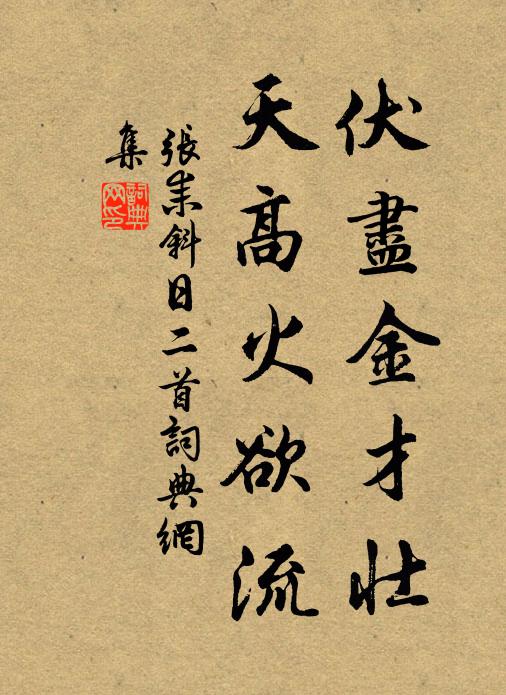 伏盡金才壯
天高火欲流
張耒斜日二首詞典網
集
詞典
网印